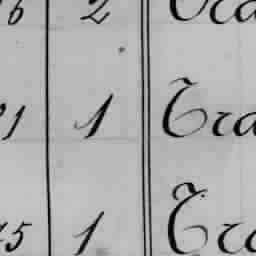 6 2 Tra
21 1 Tra
15 1 Tra